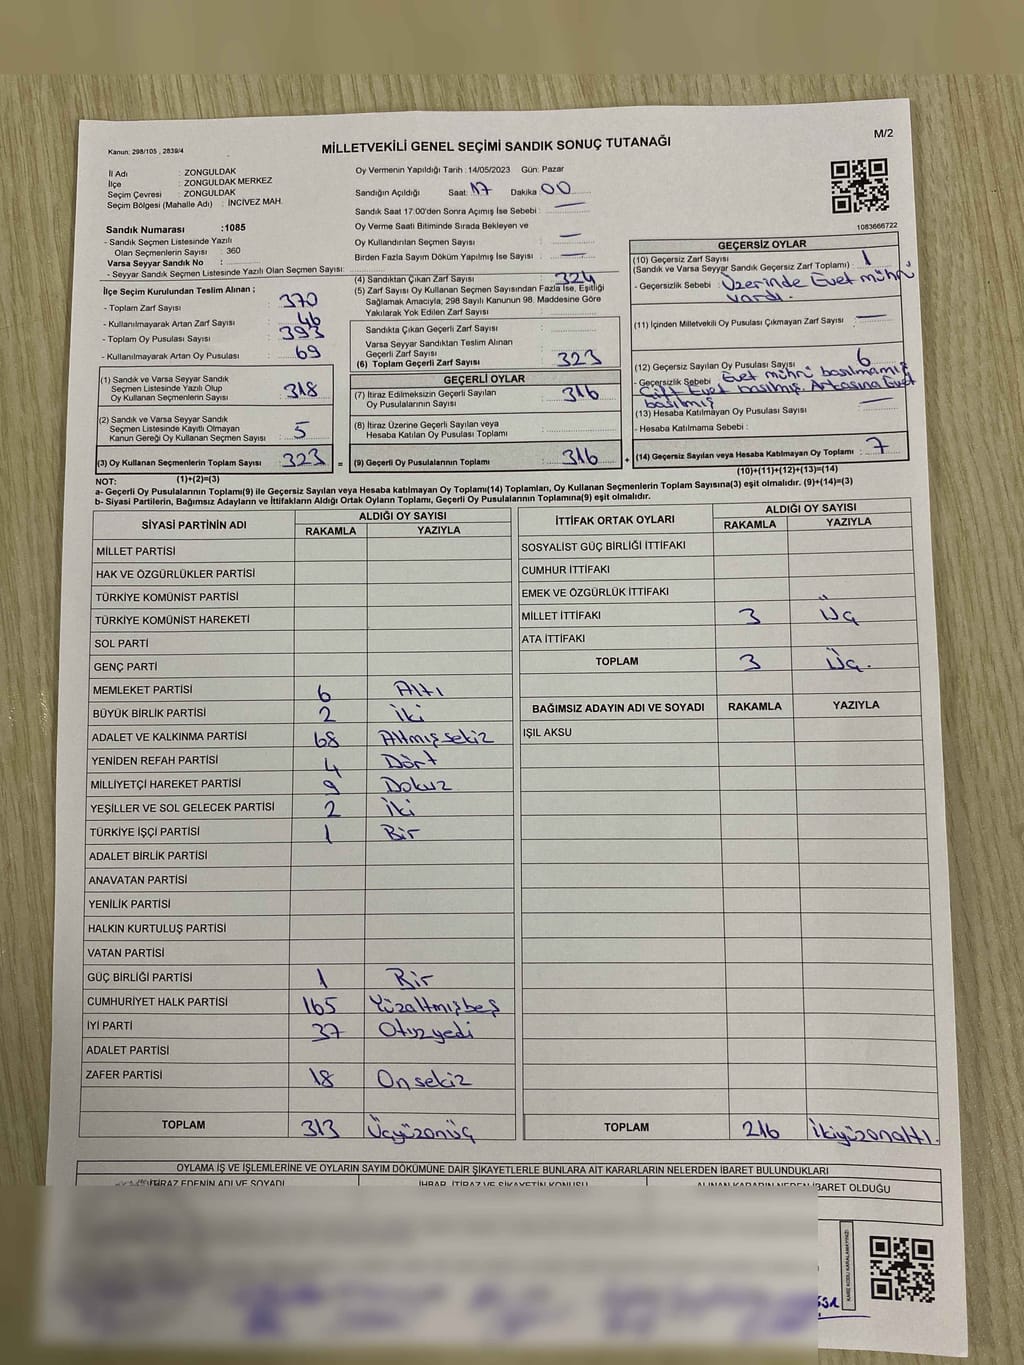 Kanun: 298/105 , 2839/4
MİLLETVEKİLİ GENEL SEÇİMİ SANDIK SONUÇ TUTANAĞI
M/2
İl Adı : ZONGULDAK
İlçe : ZONGULDAK MERKEZ
Seçim Çevresi : ZONGULDAK
Seçim Bölgesi (Mahalle Adı) : İNCİVEZ MAH.
Sandık Numarası :1085
- Sandık Seçmen Listesinde Yazılı
Olan Seçmenlerin Sayısı : 360
Varsa Seyyar Sandık No :
- Seyyar Sandık Seçmen Listesinde Yazılı Olan Seçmen Sayısı:
Oy Vermenin Yapıldığı Tarih : 14/05/2023 Gün: Pazar
Sandığın Açıldığı Saat: 17 Dakika 00
Sandık Saat 17:00'den Sonra Açımış İse Sebebi : —
Oy Verme Saati Bitiminde Sırada Bekleyen ve
Oy Kullandırılan Seçmen Sayısı : —
Birden Fazla Sayım Döküm Yapılmış İse Sayısı : —
1083666722
İlçe Seçim Kurulundan Teslim Alınan ;
- Toplam Zarf Sayısı : 370
- Kullanılmayarak Artan Zarf Sayısı : 46
- Toplam Oy Pusulası Sayısı : 393
- Kullanılmayarak Artan Oy Pusulası : 69
(1) Sandık ve Varsa Seyyar Sandık
Seçmen Listesinde Yazılı Olup
Oy Kullanan Seçmenlerin Sayısı : 318
(2) Sandık ve Varsa Seyyar Sandık
Seçmen Listesinde Kayıtlı Olmayan
Kanun Gereği Oy Kullanan Seçmen Sayısı : 5
(3) Oy Kullanan Seçmenlerin Toplam Sayısı : 323
(4) Sandıktan Çıkan Zarf Sayısı : 324
(5) Zarf Sayısı Oy Kullanan Seçmen Sayısından Fazla İse, Eşitliği
Sağlamak Amacıyla, 298 Sayılı Kanunun 98. Maddesine Göre
Yakılarak Yok Edilen Zarf Sayısı :
Sandıkta Çıkan Geçerli Zarf Sayısı :
Varsa Seyyar Sandıktan Teslim Alınan
Geçerli Zarf Sayısı :
(6) Toplam Geçerli Zarf Sayısı : 323
GEÇERLİ OYLAR
(7) İtiraz Edilmeksizin Geçerli Sayılan
Oy Pusulalarının Sayısı : 316
(8) İtiraz Üzerine Geçerli Sayılan veya
Hesaba Katılan Oy Pusulası Toplamı :
= (9) Geçerli Oy Pusulalarının Toplamı : 316 +
GEÇERSİZ OYLAR
(10) Geçersiz Zarf Sayısı
(Sandık ve Varsa Seyyar Sandık Geçersiz Zarf Toplamı) : 1
- Geçersizlik Sebebi : Üzerinde Evet mührü
vardı.
(11) İçinden Milletvekili Oy Pusulası Çıkmayan Zarf Sayısı : —
(12) Geçersiz Sayılan Oy Pusulası Sayısı : 6
- Geçersizlik Sebebi : Evet mührü basılmamış
Çift Evet basılmış. Arkasına Evet
basılmış
(13) Hesaba Katılmayan Oy Pusulası Sayısı : —
- Hesaba Katılmama Sebebi :
(14) Geçersiz Sayılan veya Hesaba Katılmayan Oy Toplamı : 7
NOT: (1)+(2)=(3)
(10)+(11)+(12)+(13)=(14)
a- Geçerli Oy Pusulalarının Toplamı(9) ile Geçersiz Sayılan veya Hesaba katılmayan Oy Toplamı(14) Toplamları, Oy Kullanan Seçmenlerin Toplam Sayısına(3) eşit olmalıdır. (9)+(14)=(3)
b- Siyasi Partilerin, Bağımsız Adayların ve İttifakların Aldığı Ortak Oyların Toplamı, Geçerli Oy Pusulalarının Toplamına(9) eşit olmalıdır.
SİYASİ PARTİNİN ADI ALDIĞI OY SAYISI
RAKAMLA YAZIYLA
MİLLET PARTİSİ
HAK VE ÖZGÜRLÜKLER PARTİSİ
TÜRKİYE KOMÜNİST PARTİSİ
TÜRKİYE KOMÜNİST HAREKETİ
SOL PARTİ
GENÇ PARTİ
MEMLEKET PARTİSİ 6 Altı
BÜYÜK BİRLİK PARTİSİ 2 İki
ADALET VE KALKINMA PARTİSİ 68 Altmışsekiz
YENİDEN REFAH PARTİSİ 4 Dört
MİLLİYETÇİ HAREKET PARTİSİ 9 Dokuz
YEŞİLLER VE SOL GELECEK PARTİSİ 2 İki
TÜRKİYE İŞÇİ PARTİSİ 1 Bir
ADALET BİRLİK PARTİSİ
ANAVATAN PARTİSİ
YENİLİK PARTİSİ
HALKIN KURTULUŞ PARTİSİ
VATAN PARTİSİ
GÜÇ BİRLİĞİ PARTİSİ 1 Bir
CUMHURİYET HALK PARTİSİ 165 Yüzaltmışbeş
İYİ PARTİ 37 Otuzyedi
ADALET PARTİSİ
ZAFER PARTİSİ 18 Onsekiz
TOPLAM 313 Üçyüzonüç
İTTİFAK ORTAK OYLARI ALDIĞI OY SAYISI
RAKAMLA YAZIYLA
SOSYALİST GÜÇ BİRLİĞİ İTTİFAKI
CUMHUR İTTİFAKI
EMEK VE ÖZGÜRLÜK İTTİFAKI
MİLLET İTTİFAKI 3 Üç
ATA İTTİFAKI
TOPLAM 3 Üç.
BAĞIMSIZ ADAYIN ADI VE SOYADI RAKAMLA YAZIYLA
IŞIL AKSU
TOPLAM 216 İkiyüzonaltı.
OYLAMA İŞ VE İŞLEMLERİNE VE OYLARIN SAYIM DÖKÜMÜNE DAİR ŞİKAYETLERLE BUNLARA AİT KARARLARIN NELERDEN İBARET BULUNDUKLARI
İTİRAZ EDENİN ADI VE SOYADI İHBAR, İTİRAZ VE ŞİKAYETİN KONUSU ALINAN KARARIN NEDEN İBARET OLDUĞU
KARE KODU KARALAMAYINIZ!